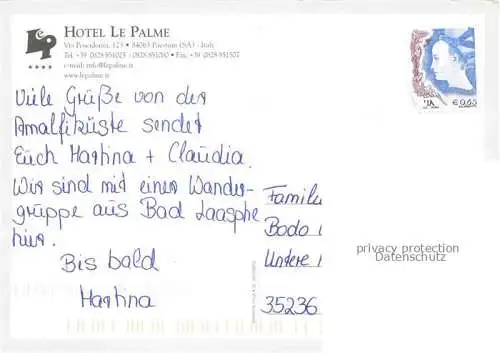 HOTEL LE PALME
Via Poseidonia, 123 • 84063 Paestum (SA) - Italy
Tel. +39 0828.851025 - 0828.851080 • Fax. +39 0828.851507
e-mail: info@lepalme.it
www.lepalme.it
IA
€ 0,65
Viele Grüße von der
Amalfiküste sendet
Euch Martina + Claudia.
Wir sind mit einer Wander-
gruppe aus Bad Laasphe
hier.
Bis bald
Martina
Famili
Bodo
Untere
35236
privacy protection
Datenschutz